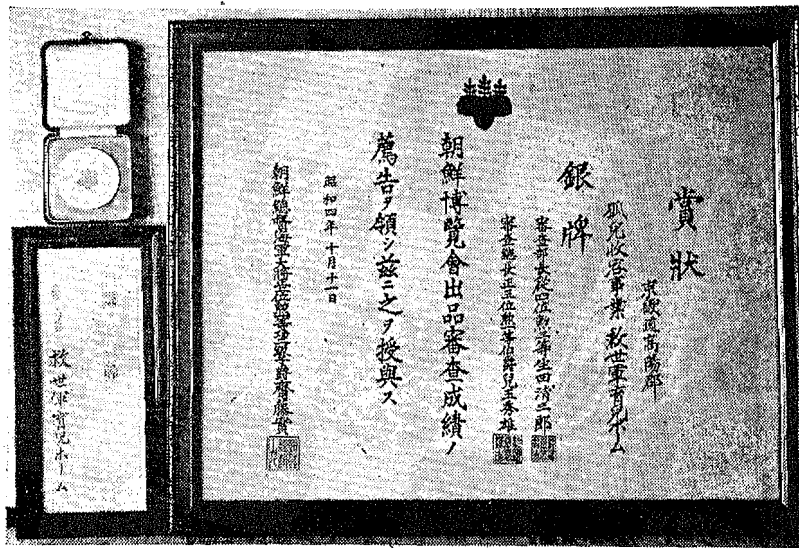 賞狀
京畿道高陽郡
孤兒收容事業 救世軍育兒ホーム
銀牌
審査部長從四位勲三等生田清三郎
審査總長正三位勲二等伯爵兒玉秀雄
朝鮮博覽會出品審査成績ノ
薦告ヲ領シ茲ニ之ヲ授與ス
昭和四年十月十一日
朝鮮總督海軍大將 子爵齋藤實
救世軍育兒ホーム